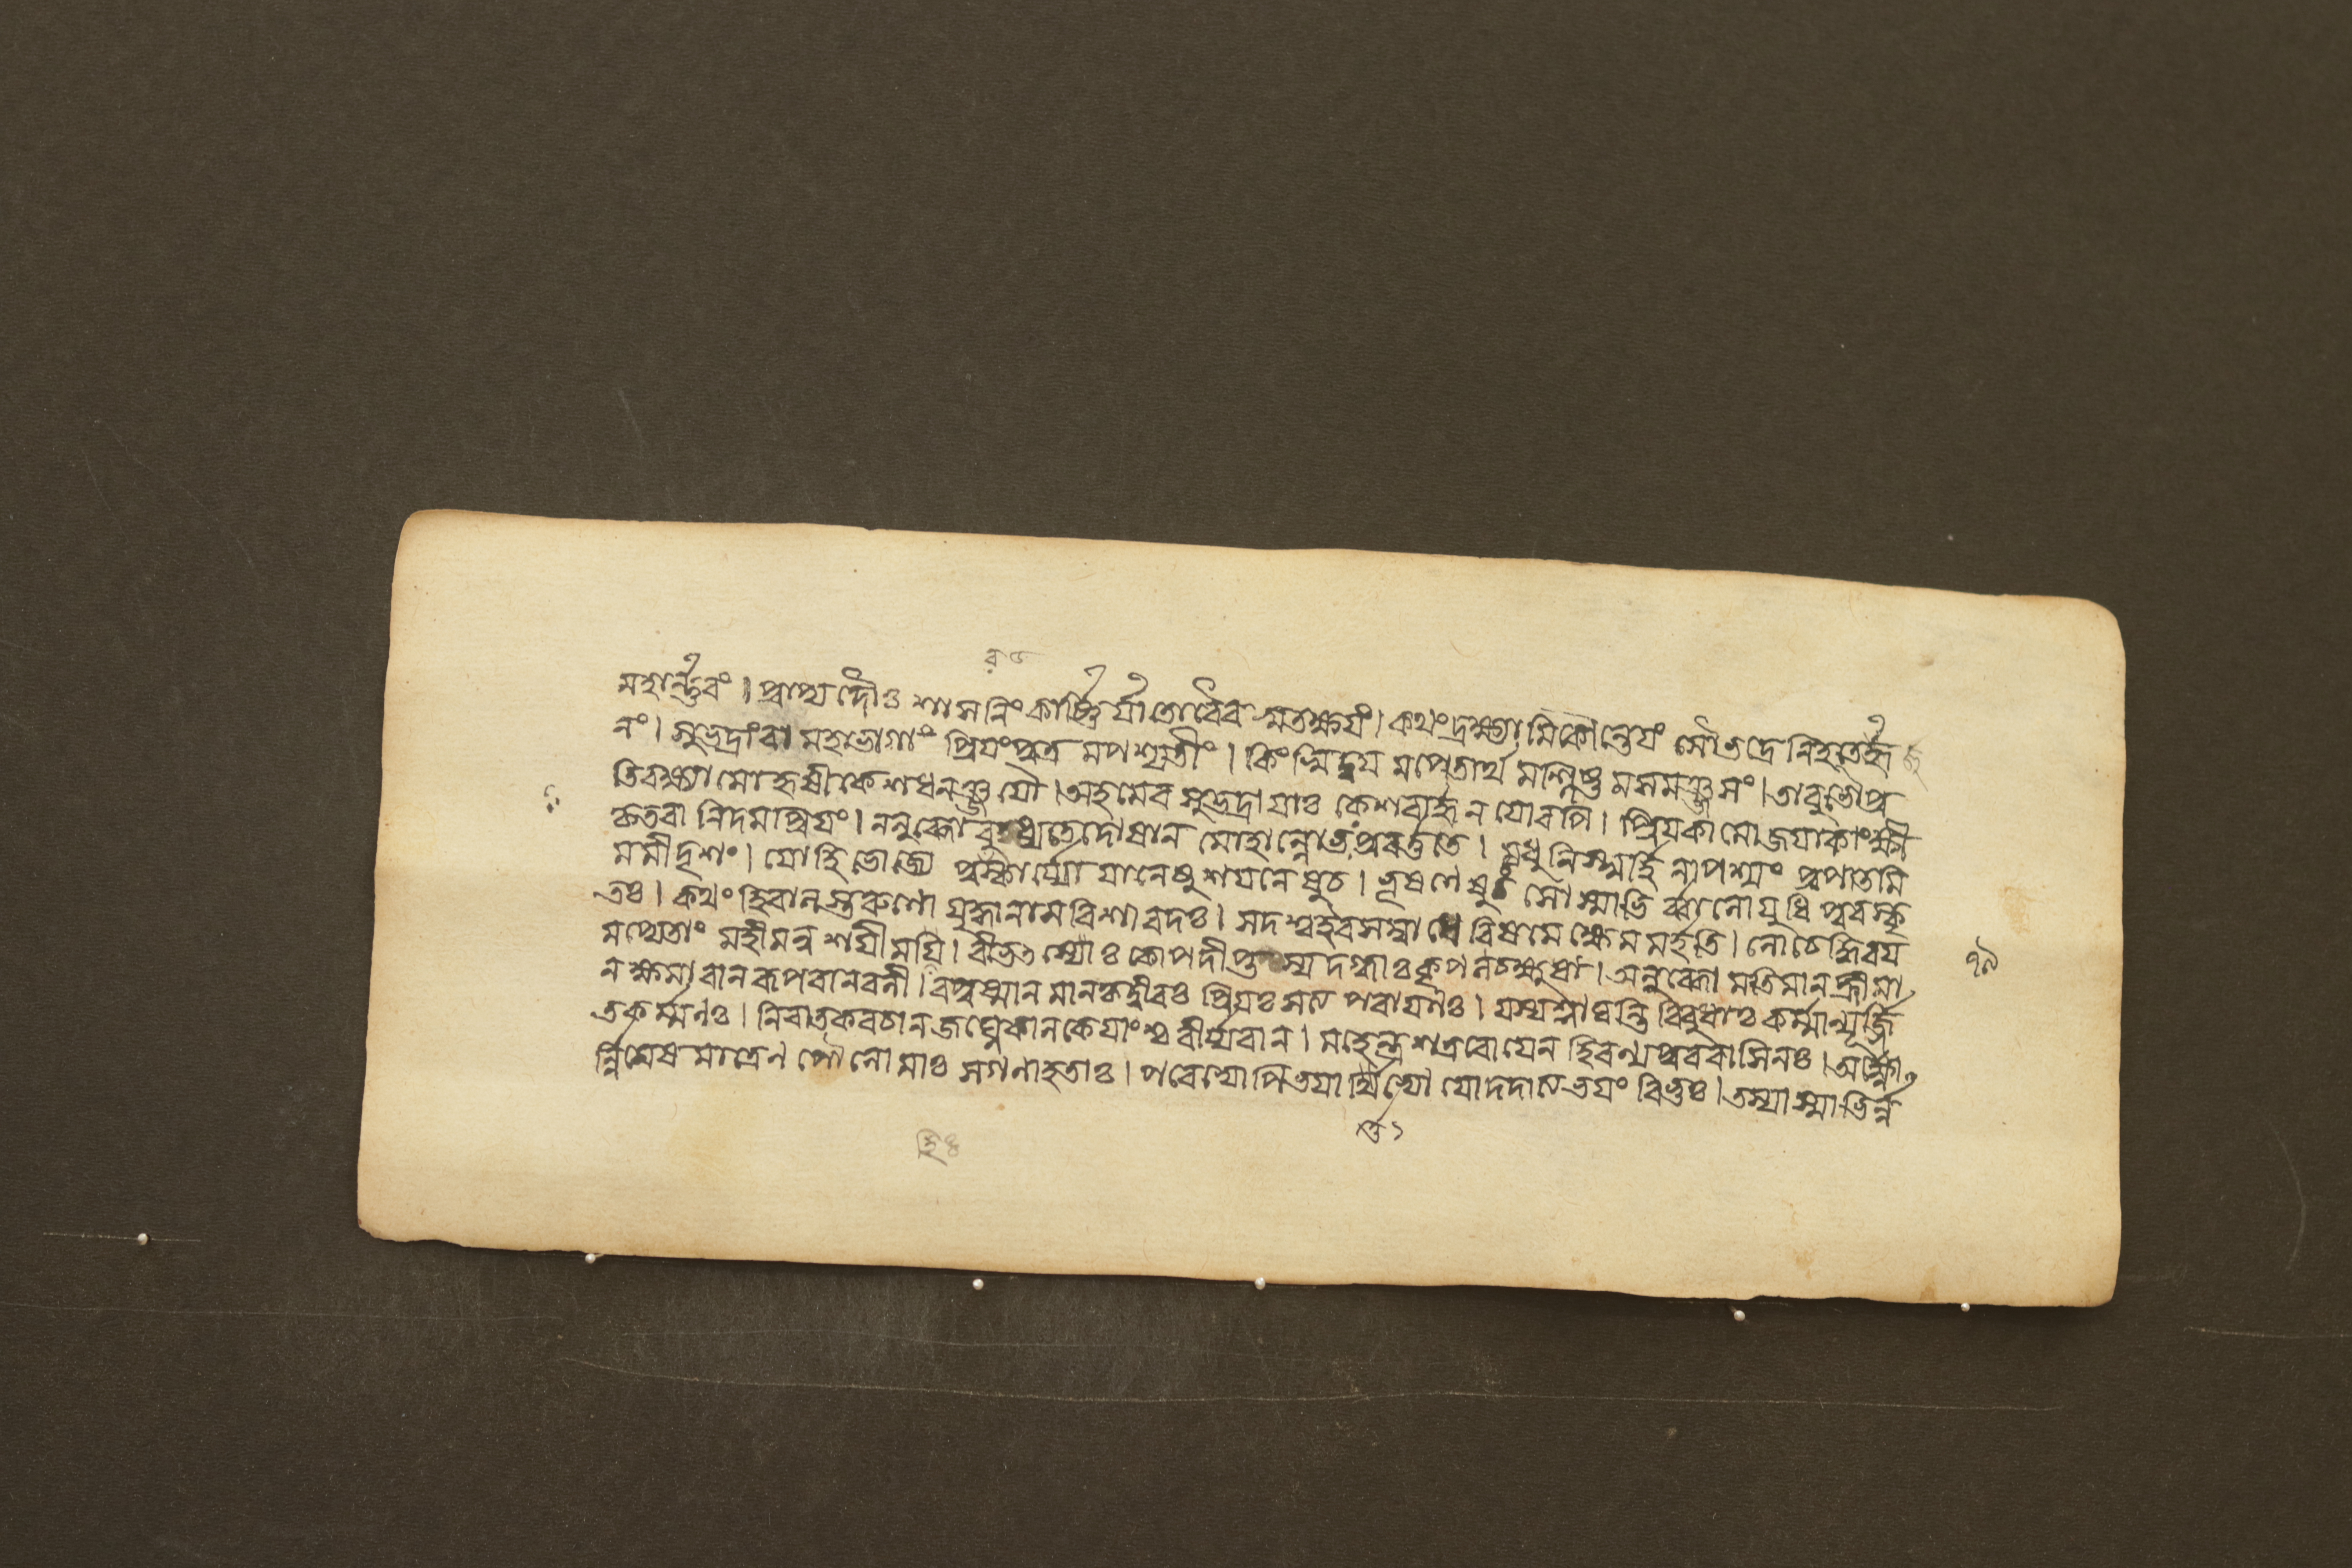 মহার্ন্নবং। প্রাপ্য দৌঃশাসনিং কার্ষ্ণির্যাতো বৈবস্বতক্ষয়ং। কথং দ্রক্ষ্যামি কৌন্তেয়ং সৌভদ্রে নিহতের্জ্জু
নং। সুভদ্রাং বা মহাভাগাং প্রিয়ং পুত্র মপশ্যতীং। কিংস্বিদ্বয় মপেতার্থ মশ্লিষ্ট মসমঞ্জসং। তাবুভৌ প্র
তিবক্ষ্যামো হৃষীকেশধনঞ্জয়ৌ। অহমেব সুভদ্রায়াঃ কেশবার্জ্জুনয়োরপি। প্রিয়কামো জয়াকাংক্ষী
কৃতবানিদমপ্রিয়ং। ন লুব্ধো বুধ্যতে দোষান মোহাল্লোভঃ প্রবর্ত্ততে। মধুলিপ্সুর্হি নাপশ্যং প্রপাতমি
মমীদৃশং। যো হি ভোজ্যে পুরস্কার্য্যো যানেষু শয়নেষু চ। ভূষণেষু চ সোস্মাভির্ব্বালো যুধি পুরস্কৃ
তঃ। কথং হি বালস্তরুণো যুদ্ধানামবিশারদঃ। সদশ্ব ইব সম্বাধে বিষমে ক্ষেমমর্হতি। নো চেদ্ধি বয়
মপ্যেতাং মহীমনুশয়ীমহি। বীভৎসোঃ কোপদীপ্তস্য দগ্ধাঃ কৃপণচক্ষুষা। অলুব্ধো মতিমান হ্রীমা
ন ক্ষমাবান রূপবান বলী। বপুষ্মান মানকৃদ্বীরঃ প্রিয়ঃ সত্যপরায়ণঃ। যস্য শ্লাঘন্তি বিবুধাঃ কর্ম্মাণ্যূর্জ্জি
তকর্ম্মণঃ। নিবাতকবচান জঘ্নে কালকেয়াংশ্চ বীর্য্যবান। মহেন্দ্রশত্রবো যেন হিরণ্যপুরবাসিনঃ। অক্ষ্ণো
র্ন্নিমেষমাত্রেণ পৌলোমাঃ সগণা হতাঃ। পরেভ্যোপ্যভয়ার্থিভ্যো যো দদাত্যভয়ং বিভুঃ। তস্যাস্মাভির্ন্ন
৭৯